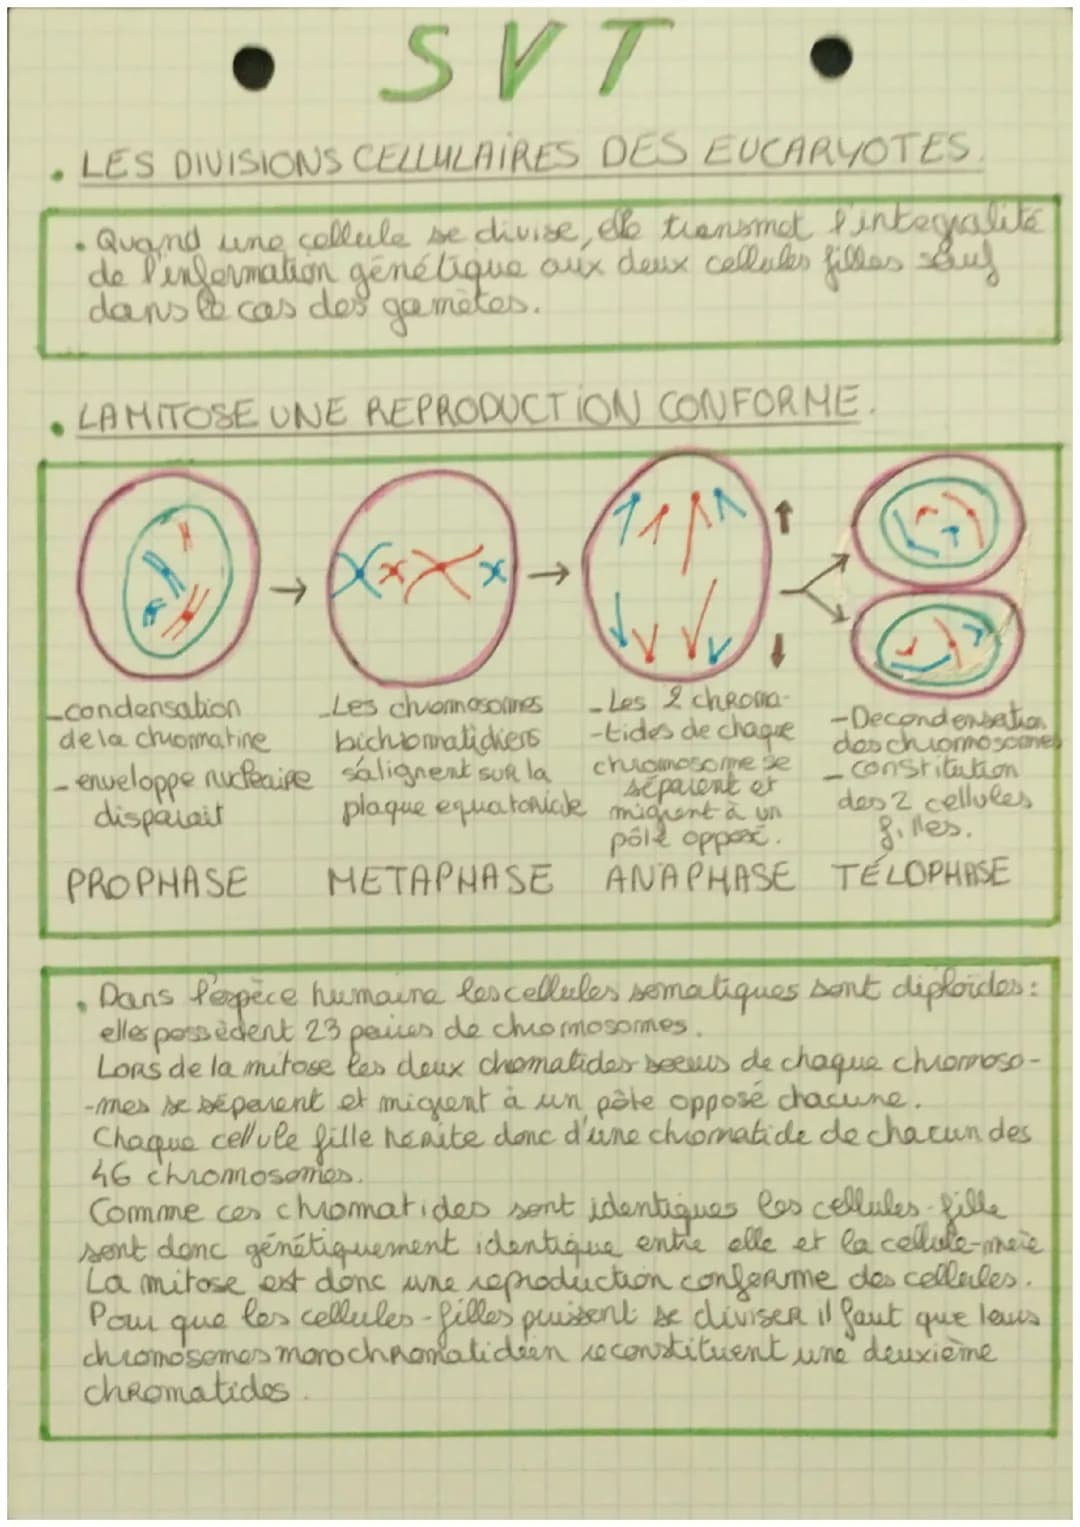 SVT
. LES DIVISIONS CELLULAIRES DES EUCARYOTES.
. Quand une cellule se divise, elle transmet l'integralité
de l'information génétique aux deux cellules filles sauf
dans le cas des gamètes.
. LA MITOSE UNE REPRODUCTION CONFORME.
- condensation
de la chromatine
- enveloppe nucléaire
disparait
PROPHASE
- Les chromosomes
bichromatidiens
s'alignent sur la
plaque equatoriale
METAPHASE
- Les 2 chroma-
-tides de chaque
chromosome se
séparent et
migrent à un
pôle opposé.
ANAPHASE
- Decondensation
des chromosomes
- constitution
des 2 cellules
filles.
TÉLOPHASE
. Dans l'espèce humaine les cellules somatiques sont diploïdes :
elles possèdent 23 paires de chromosomes.
Lors de la mitose les deux chromatides soeurs de chaque chromoso-
-mes se séparent et migrent à un pôle opposé chacune.
Chaque cellule fille hérite donc d'une chromatide de chacun des
46 chromosomes.
Comme ces chromatides sont identiques les cellules-fille
sont donc génétiquement identique entre elle et la cellule-mère
La mitose est donc une reproduction conforme des cellules.
Pour que les cellules-filles puissent se diviser il faut que leurs
chromosomes monochromatidien reconstituent une deuxième
chromatides.